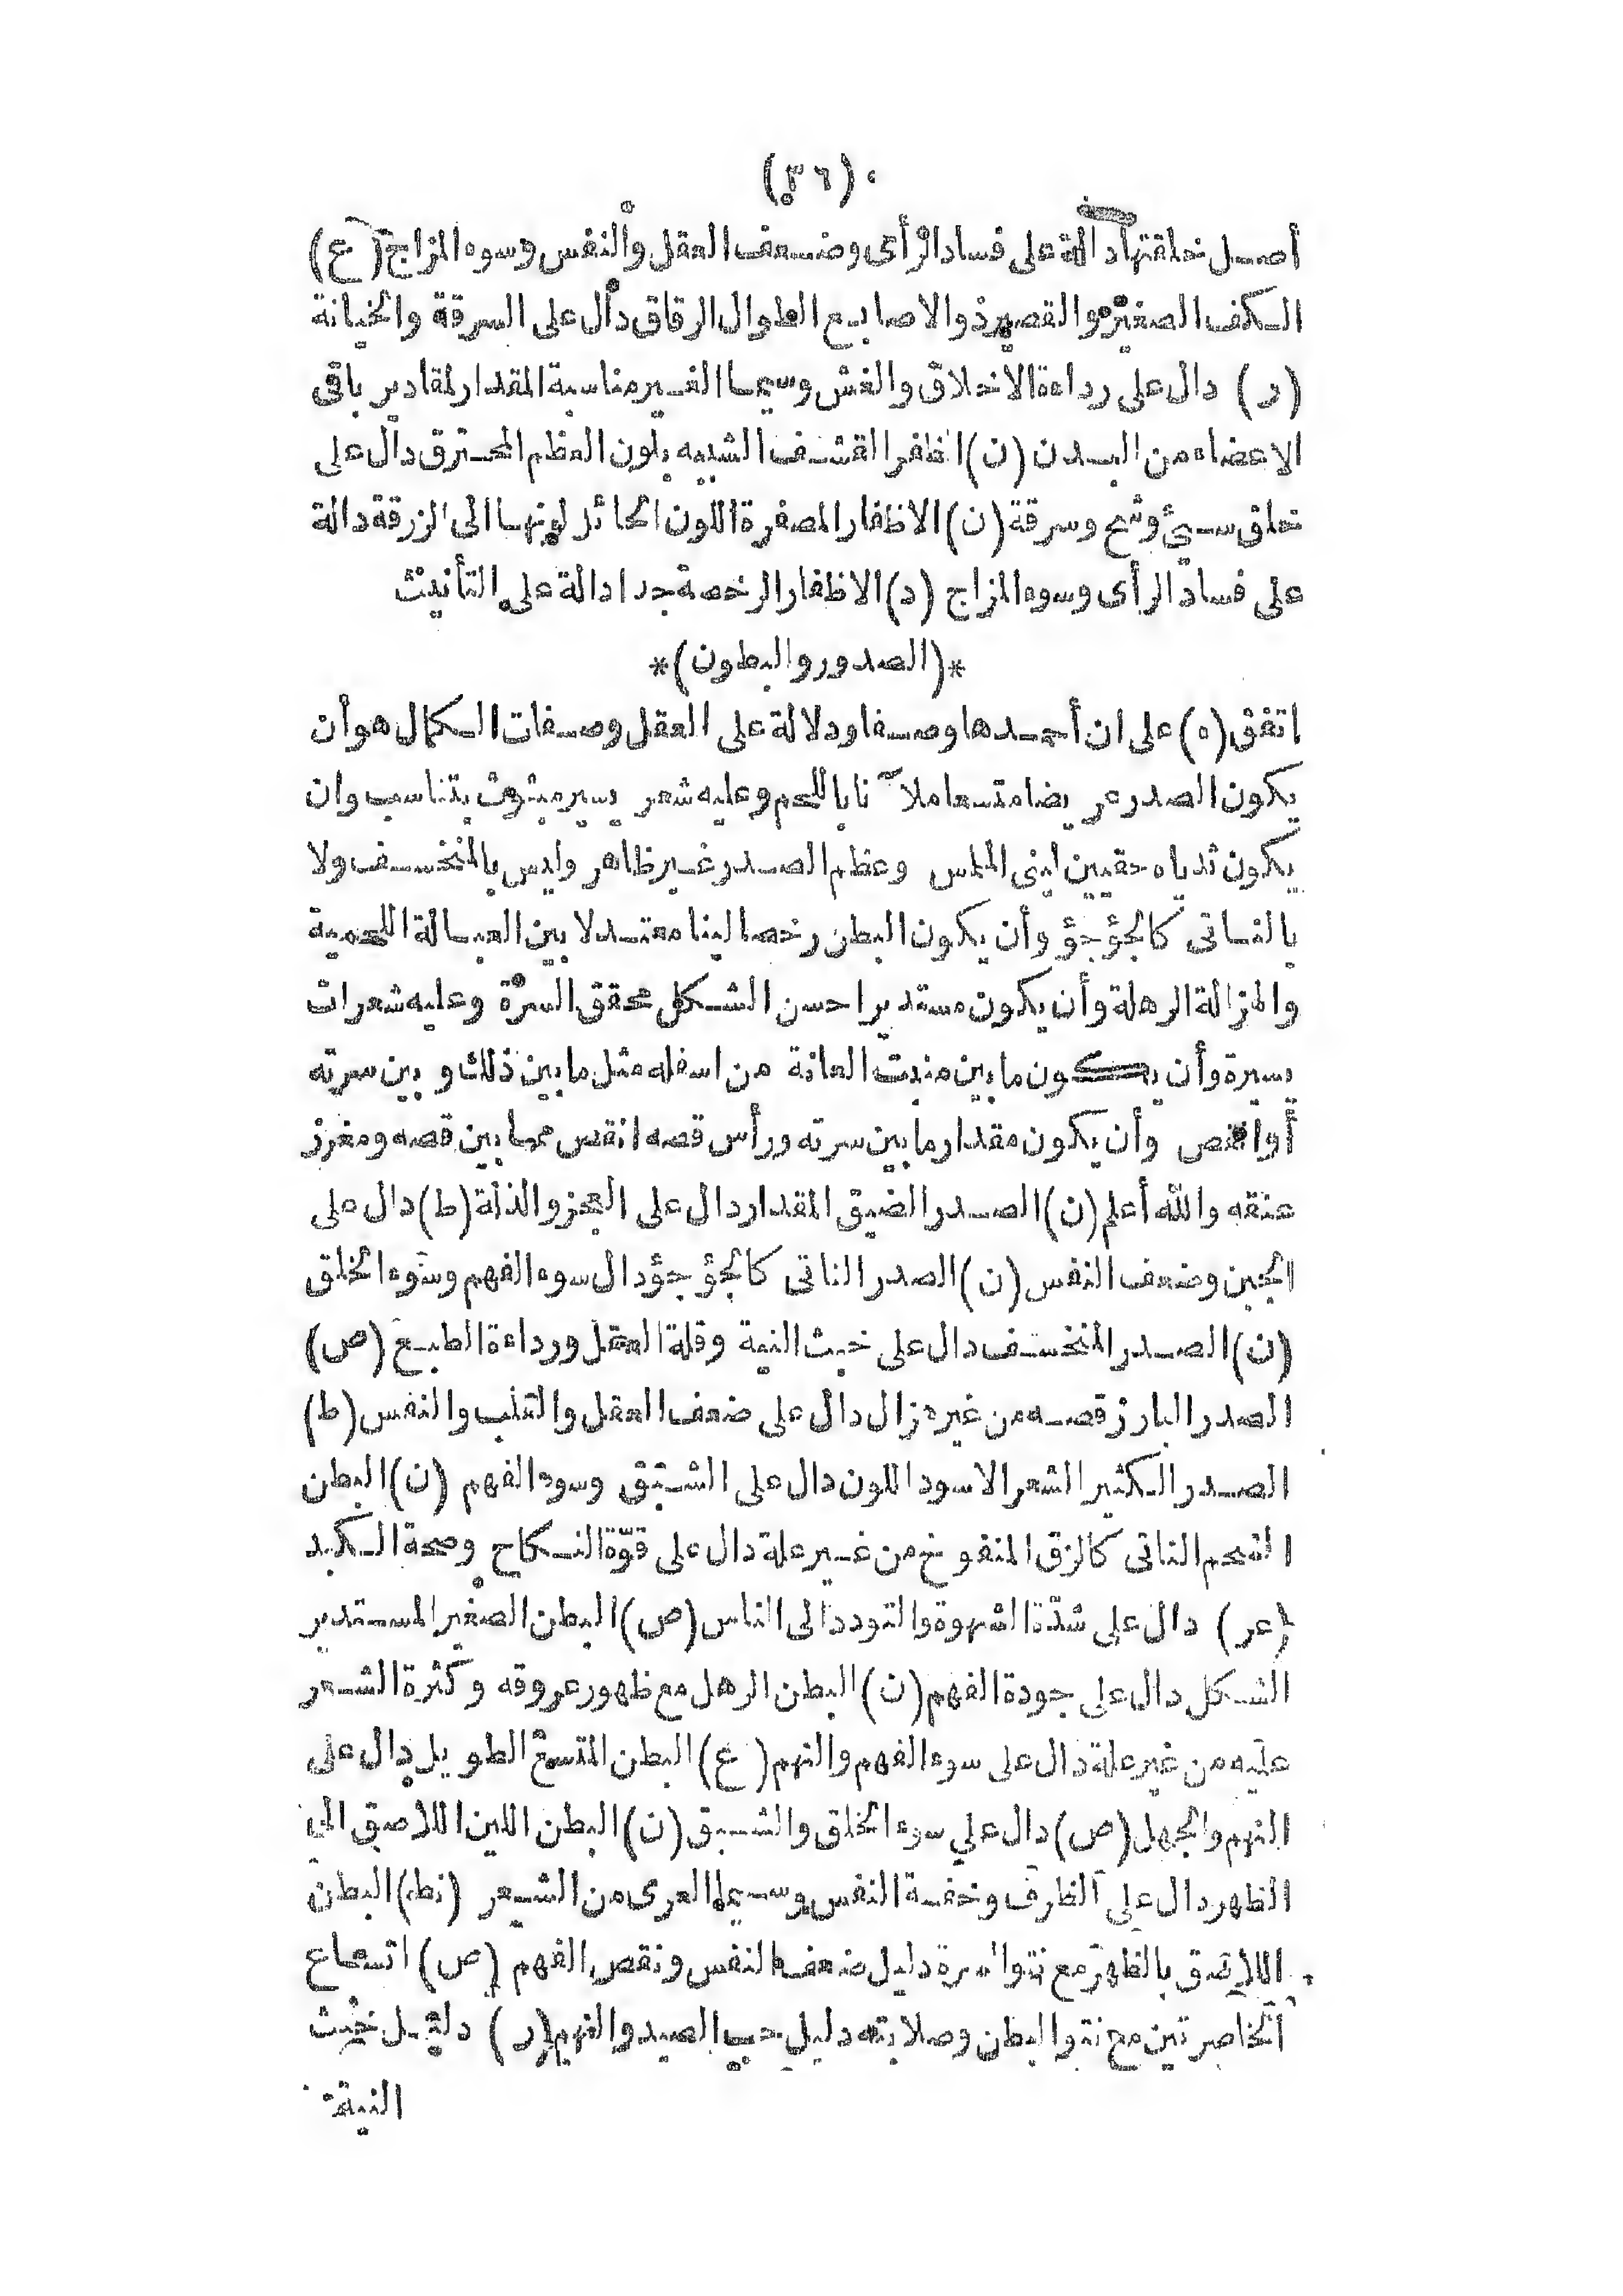 (٣٦)
أصل خلقتها دالة على فساد الرأى وضعف العقل والنفس وسوء المزاج (ع)
الكف الصغير والقصير ذو الاصابع الطوال الرقاق دال على السرقة والخيانة
(ر) دال على رداءة الاخلاق والغش وسيما الغير مناسبة المقدار لمقادير باقى
الاعضاء من البدن (ن) الظفر القشف الشبيه بلون العظم المحترق دال على
خلق سيئ وشح وسرقة (ن) الاظفار المصفرة اللون الحائد لونها الى الزرقة دالة
على فساد الرأى وسوء المزاج (د) الاظفار الرخصة جدا دالة على التأنيث
*(الصدور والبطون)*
اتفق (ه) على ان أحمدها وصفا ودلالة على العقل وصفات الكمال هو أن
يكون الصدر عريضا متسعا ملآنا باللحم وعليه شعر يسير مبثوث بتناسب وان
يكون ثدياه حقيين لينى الملمس وعظم الصدر غير ظاهر وليس بالمنخسف ولا
بالناتى كالجؤجؤ وأن يكون البطن رخصا لينا معتدلا بين العبالة اللحمية
والهزالة الرهلة وأن يكون مستديرا حسن الشكل محقق السرة وعليه شعرات
يسيرة وأن يكون ما بين منبت العانة من اسفله مثل ما بين ذلك وبين سرته
أو انقص وأن يكون مقدار ما بين سرته ورأس قصه انقص مما بين قصه ومغرز
عنقه والله أعلم (ن) الصدر الضيق المقدار دال على العجز والذلة (ط) دال على
الجبن وضعف النفس (ن) الصدر الناتى كالجؤجؤ دال سوء الفهم وسوء الخلق
(ن) الصدر المنخسف دال على خبث النية وقلة العقل ورداءة الطبع (ص)
الصدر البارز قصه من غير هزال دال على ضعف العقل والقلب والنفس (ط)
الصدر الكثير الشعر الاسود اللون دال على الشبق وسوء الفهم (ن) البطن
اللحم الناتى كالزق المنفوخ من غير علة دال على قوّة النكاح وصحة الكبد
(عر) دال على شدّة الشهوة والتودد الى الناس (ص) البطن الصغير المستدير
الشكل دال على جودة الفهم (ن) البطن الرهل مع ظهور عروقه وكثرة الشعر
عليه من غير علة دال على سوء الفهم والنهم (ع) البطن المتسع الطويل دال على
النهم والجهل (ص) دال على سوء الخلق والشبق (ن) البطن اللين اللاصق الى
الظهر دال على الظرف وخفة النفس وسيما العرى من الشعر (نط) البطن
اللاصق بالظهر مع نتو السرة دليل ضعف النفس ونقص الفهم (ص) اتساع
الخاصرتين مع نتو البطن وصلابته دليل حب الصيد والنهم (ر) دليل خبث
النية